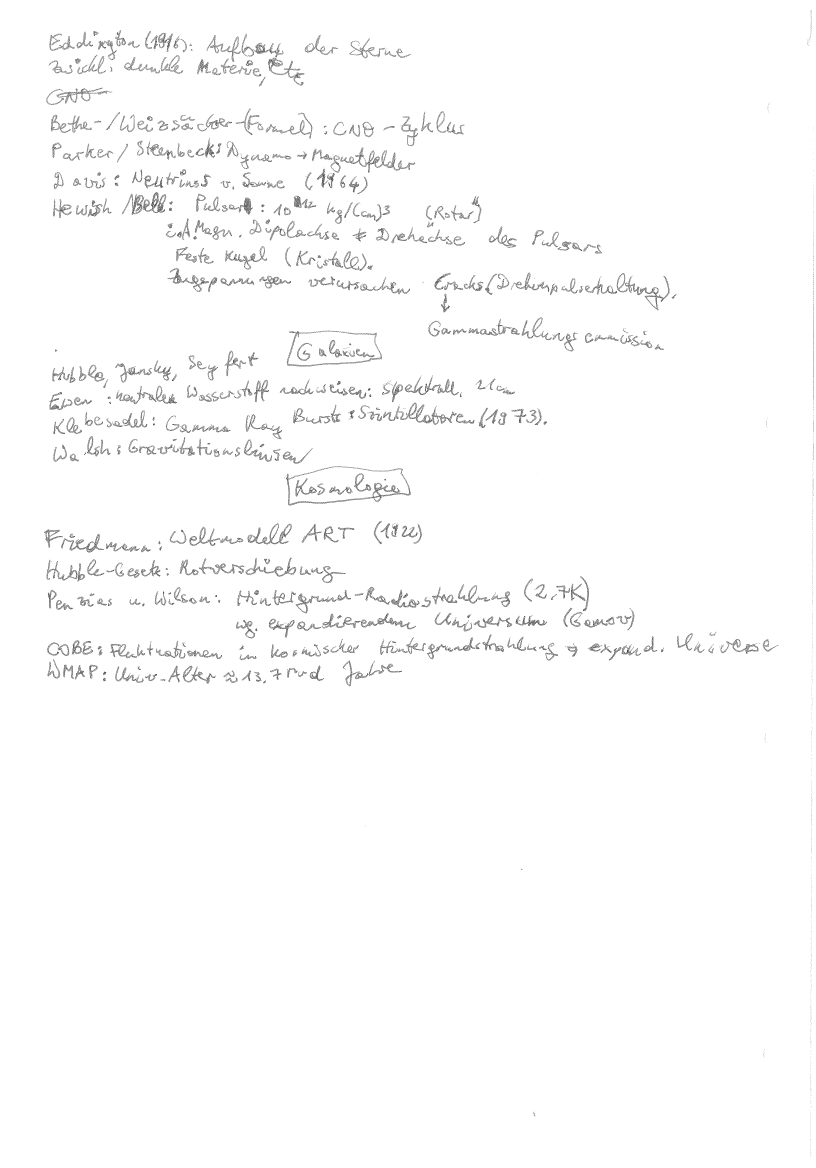 Eddington (1916): Aufbau der Sterne
Zwickl: dunkle Materie, etc
CNO
Bethe-/Weizsäcker-(Formel): CNO-Zyklus
Parker/Steenbeck: Dynamo → Magnetfelder
Davis: Neutrinos v. Sonne (1964)
Hewish/Bell: Pulsar: 10¹² kg/(cm)³ ("Rotar")
i.A. Magn. Dipolachse ≠ Drehachse des Pulsars
Feste Kugel (Kristall).
verursachen Cracks (Drehimpulserhaltung).
↓
Gammastrahlungsemmission
Galaxien
Hubble, Jansky, Seyfert
Ewen: neutralen Wasserstoff nachweisen: Spektrall. 21cm
Klebesadel: Gamma Ray Bursts: Szintillatoren (1973).
Walsh: Gravitationslinsen
Kosmologie
Friedmann: Weltmodell ART (1922)
Hubble-Gesetz: Rotverschiebung
Penzias u. Wilson: Hintergrund-Radiostrahlung (2,7K)
wg. expandierendem Universum (Gamov)
COBE: Fluktuationen in kosmischer Hintergrundstrahlung → expand. Universe
WMAP: Univ-Alter ≈ 13,7 Mrd Jahre